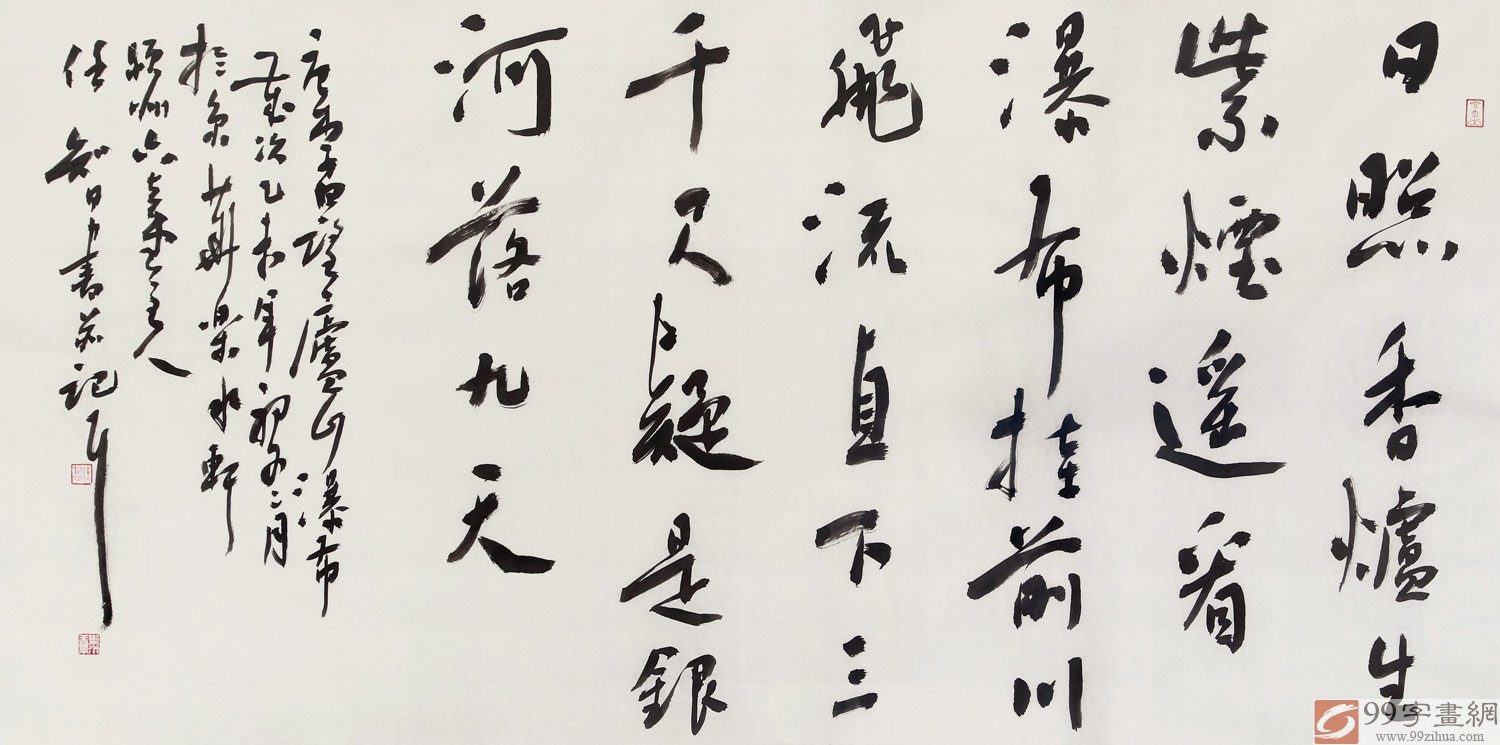 日照香爐生
紫煙遥看
瀑布挂前川
飛流直下三
千尺疑是銀
河落九天
唐李白望廬山瀑布
歲次乙未年初夏二月
於京華樂水軒
六盦主人
任智力書並記
99字畫網
www.99zihua.com